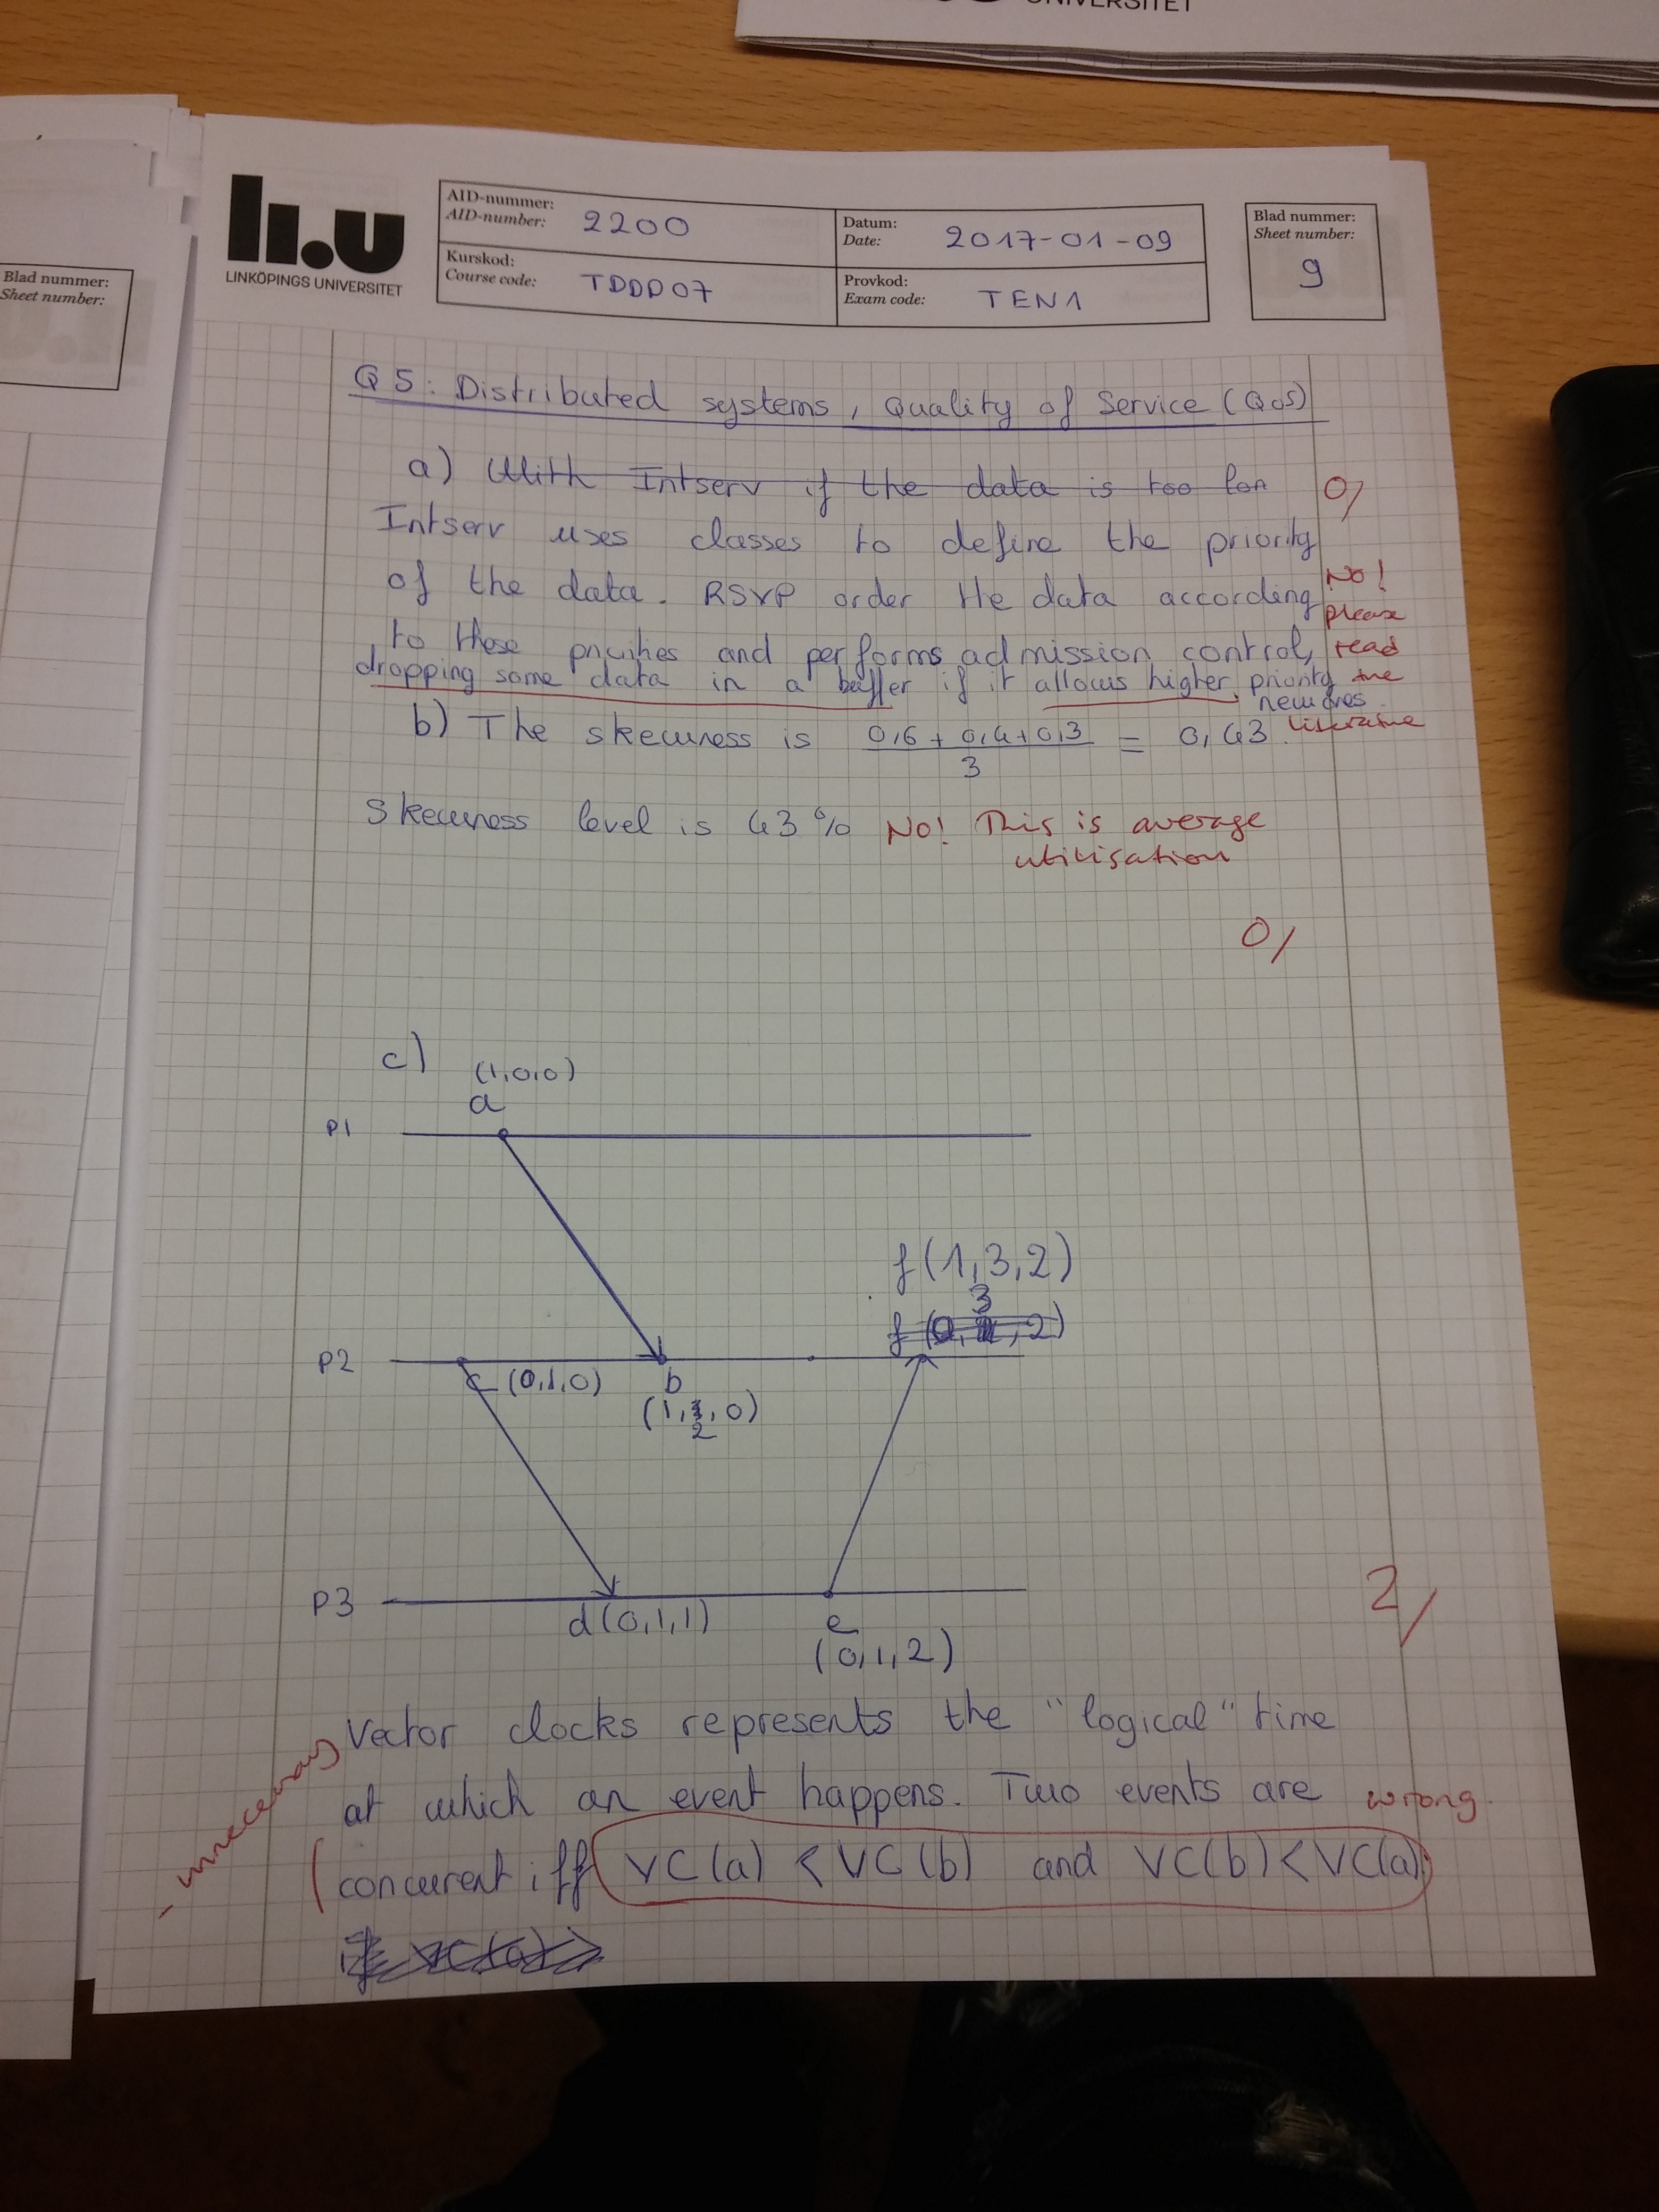 UNIVERSITET
Blad nummer:
Sheet number:
li.u
LINKÖPINGS UNIVERSITET
AID-nummer:
AID-number: 2200
Datum:
Date: 2017-01-09
Kurskod:
Course code: TDDD07
Provkod:
Exam code: TEN1
Blad nummer:
Sheet number:
9
Q5: Distributed systems, Quality of Service (QoS)
a) With Intserv if the data is too lon
0/
Intserv uses classes to define the priority
of the data. RSVP order the data according
to these priorities and performs admission control,
dropping some data in a buffer if it allows higher priority
new ones.
No!
please
read
the
literature
b) The skewness is 0,6 + 0,4 + 0,3 / 3 = 0,43.
Skewness level is 43% No! This is average
utilisation
0/
c) (1,0,0)
a
P1
f(1,3,2)
3
f (0, , 2)
P2
c (0,1,0) b
(1, , 0)
2
P3
d(0,1,1) e
(0,1,2)
2/
Vector clocks represents the "logical" time
at which an event happens. Two events are wrong
- unnecessary
concurent iff VC(a) < VC(b) and VC(b) < VC(a).
if VC(a)